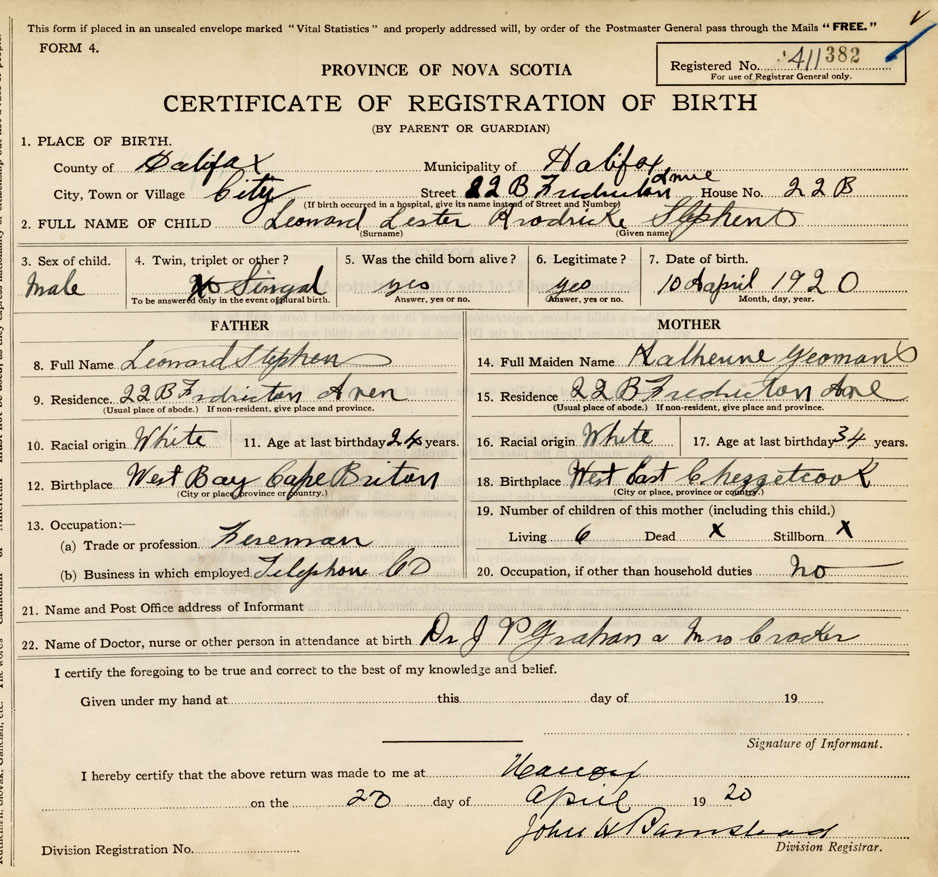 This form if placed in an unsealed envelope marked "Vital Statistics" and properly addressed will, by order of the Postmaster General pass through the Mails "FREE."
FORM 4.
Registered No. 411382
For use of Registrar General only.
PROVINCE OF NOVA SCOTIA
CERTIFICATE OF REGISTRATION OF BIRTH
(BY PARENT OR GUARDIAN)
1. PLACE OF BIRTH.
County of Halifax Municipality of Halifax
City, Town or Village City Street 22 B Fredricton Anue House No. 22 B
(If birth occurred in a hospital, give its name instead of Street and Number)
2. FULL NAME OF CHILD Leonard Lester Rrodrick Stephens
(Surname) (Given name)
3. Sex of child. 4. Twin, triplet or other? 5. Was the child born alive? 6. Legitimate? 7. Date of birth.
Male No Singal yes yes 10 April 1920
To be answered only in the event of plural birth. Answer, yes or no. Answer, yes or no. Month, day, year.
FATHER MOTHER
8. Full Name Leonard Stephen 14. Full Maiden Name Katherine Yeomans
9. Residence 22 B Fredricton Aven 15. Residence 22 B Fredricton Ave
(Usual place of abode.) If non-resident, give place and province. (Usual place of abode.) If non-resident, give place and province.
10. Racial origin White 11. Age at last birthday 24 years. 16. Racial origin White 17. Age at last birthday 34 years.
12. Birthplace West Bay Cape Briton 18. Birthplace West East Chezzetcook
(City or place, province or country.) (City or place, province or country.)
13. Occupation:— 19. Number of children of this mother (including this child.)
(a) Trade or profession Fireman Living 6 Dead X Stillborn X
(b) Business in which employed Telephon CO 20. Occupation, if other than household duties no
21. Name and Post Office address of Informant
22. Name of Doctor, nurse or other person in attendance at birth Dr J P Grahan & Mrs Crocker
I certify the foregoing to be true and correct to the best of my knowledge and belief.
Given under my hand at this day of 19
Signature of Informant.
I hereby certify that the above return was made to me at
on the 20 day of April 1920
John H
Division Registration No. Division Registrar.